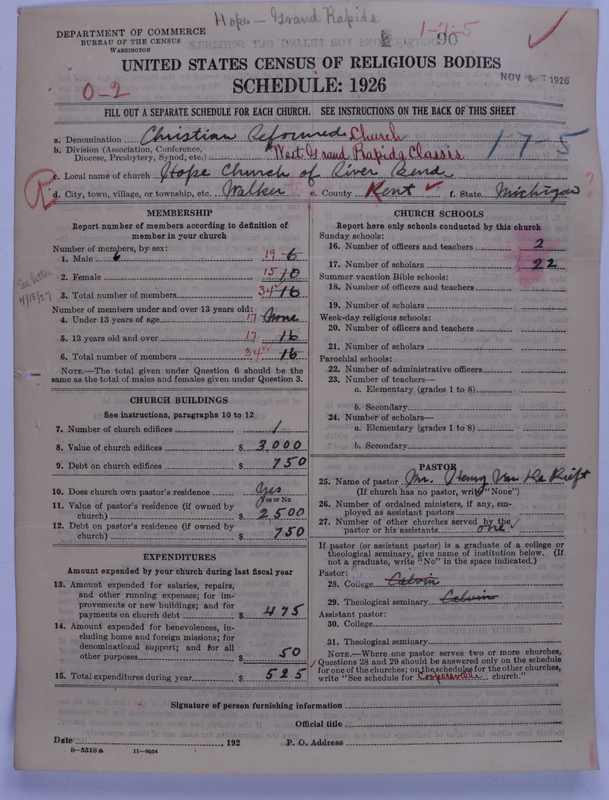 Hope - Grand Rapids
DEPARTMENT OF COMMERCE
BUREAU OF THE CENSUS
WASHINGTON
1-7-5
90
NOV 1926
UNITED STATES CENSUS OF RELIGIOUS BODIES
SCHEDULE: 1926
0-2
FILL OUT A SEPARATE SCHEDULE FOR EACH CHURCH. SEE INSTRUCTIONS ON THE BACK OF THIS SHEET
a. Denomination Christian Reformed Church
b. Division (Association, Conference,
Diocese, Presbytery, Synod, etc.) West Grand Rapids Classis 1-7-5
c. Local name of church Hope Church of River Bend
R
d. City, town, village, or township, etc. Walker e. County Kent f. State Michigan ?
MEMBERSHIP
Report number of members according to definition of
member in your church
Number of members, by sex:
1. Male 6 19 6
2. Female 15 10
See letter 4/18/27
3. Total number of members 34 16
Number of members under and over 13 years old:
4. Under 13 years of age 17 None
5. 13 years old and over 17 16
6. Total number of members 34 16
NOTE.—The total given under Question 6 should be
same as the total of males and females given under Question 3.
CHURCH BUILDINGS
See instructions, paragraphs 10 to 12
7. Number of church edifices 1
8. Value of church edifices $ 3,000
9. Debt on church edifices $ 750
10. Does church own pastor's residence Yes
Yes or No
11. Value of pastor's residence (if owned by
church) $ 2500
12. Debt on pastor's residence (if owned by
church) $ 750
EXPENDITURES
Amount expended by your church during last fiscal year
13. Amount expended for salaries, repairs,
and other running expenses; for im-
provements or new buildings; and for
payments on church debt $ 475
14. Amount expended for benevolences, in-
cluding home and foreign missions; for
denominational support; and for all
other purposes $ 50
15. Total expenditures during year $ 525
CHURCH SCHOOLS
Report here only schools conducted by this church
Sunday schools:
16. Number of officers and teachers 2
17. Number of scholars 22
Summer vacation Bible schools:
18. Number of officers and teachers
19. Number of scholars
Week-day religious schools:
20. Number of officers and teachers
21. Number of scholars
Parochial schools:
22. Number of administrative officers
23. Number of teachers—
a. Elementary (grades 1 to 8)
b. Secondary
24. Number of scholars—
a. Elementary (grades 1 to 8)
b. Secondary
PASTOR
25. Name of pastor Mr. Henry Van De Rieft
(If church has no pastor, write "None")
26. Number of ordained ministers, if any, em-
ployed as assistant pastors
27. Number of other churches served by the
pastor or his assistants one
If pastor (or assistant pastor) is a graduate of a college or
theological seminary, give name of institution below. (If
not a graduate, write "No" in the space indicated.)
Pastor:
28. College Calvin
29. Theological seminary Calvin
Assistant pastor:
30. College
31. Theological seminary
NOTE.—Where one pastor serves two or more churches,
Questions 28 and 29 should be answered only on the schedule
for one of the churches; on the schedules for the other churches,
write "See schedule for Coopersville church."
Signature of person furnishing information
Official title
Date , 192 P. O. Address
8-5518a 11-9034